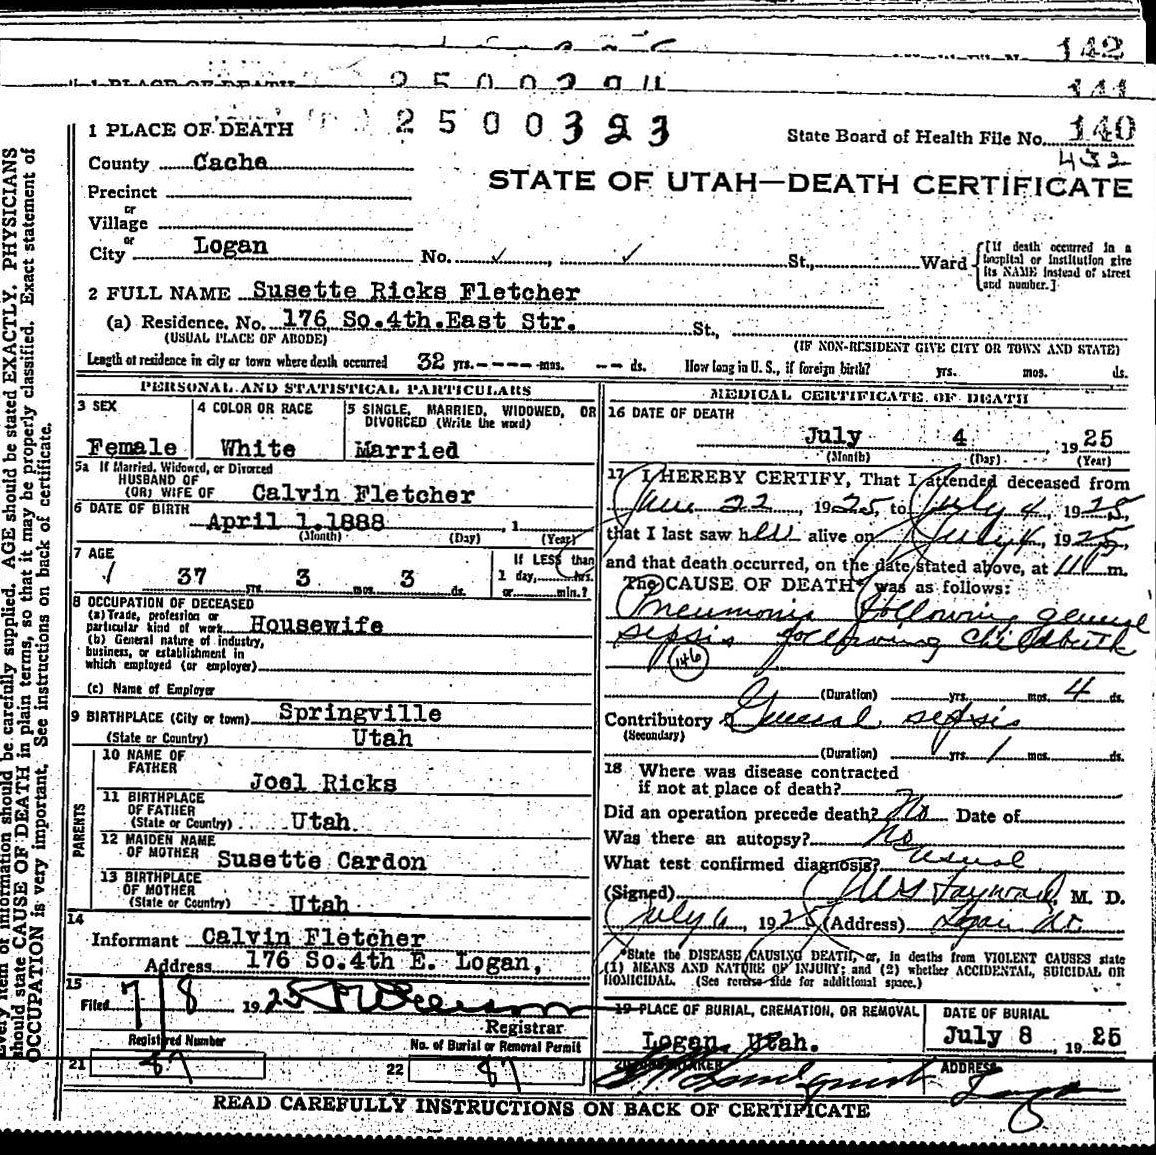 142
141
2500323
1 PLACE OF DEATH
State Board of Health File No. 140
432
County Cache
STATE OF UTAH—DEATH CERTIFICATE
Precinct
or
Village
or
City Logan No. ✓ , ✓ St., Ward {[If death occurred in a hospital or institution give its NAME instead of street and number.]
2 FULL NAME Susette Ricks Fletcher
(a) Residence. No. 176 So.4th.East Str. St.,
(USUAL PLACE OF ABODE) (IF NON-RESIDENT GIVE CITY OR TOWN AND STATE)
Length of residence in city or town where death occurred 32 yrs. - - - - mos. - - ds. How long in U. S., if foreign birth? yrs. mos. ds.
PERSONAL AND STATISTICAL PARTICULARS
3 SEX 4 COLOR OR RACE 5 SINGLE, MARRIED, WIDOWED, OR
DIVORCED (Write the word)
Female White Married
5a If Married, Widowed, or Divorced
HUSBAND OF
(OR) WIFE OF Calvin Fletcher
6 DATE OF BIRTH
April 1.1888 , 1
(Month) (Day) (Year)
7 AGE If LESS than
37 yrs. 3 mos. 3 ds. 1 day, hrs.
or min.?
8 OCCUPATION OF DECEASED
(a) Trade, profession or
particular kind of work Housewife
(b) General nature of industry,
business, or establishment in
which employed (or employer)
(c) Name of Employer
9 BIRTHPLACE (City or town) Springville
(State or Country) Utah
PARENTS
10 NAME OF
FATHER
Joel Ricks
11 BIRTHPLACE
OF FATHER
(State or Country) Utah
12 MAIDEN NAME
OF MOTHER Susette Cardon
13 BIRTHPLACE
OF MOTHER
(State or Country) Utah
14
Informant Calvin Fletcher
Address 176 So.4th E. Logan,
15
Filed 7/8 1925
Registrar
Registered Number No. of Burial or Removal Permit
21 87 22 87
MEDICAL CERTIFICATE OF DEATH
16 DATE OF DEATH
July 4 , 1925
(Month) (Day) (Year)
17 I HEREBY CERTIFY, That I attended deceased from
June 22 , 1925, to July 4, 1925,
that I last saw her alive on July 4, 1925,
and that death occurred, on the date stated above, at m.
The CAUSE OF DEATH* was as follows:
Pneumonia following general
sepsis following childbirth
146
(Duration) yrs. mos. 4 ds.
Contributory General sepsis
(Secondary)
(Duration) yrs. 1 mos. ds.
18 Where was disease contracted
if not at place of death?
Did an operation precede death? No Date of
Was there an autopsy? No
What test confirmed diagnosis? usual
(Signed) Hayward, M. D.
July 6, 1925 (Address) Logan
*State the DISEASE CAUSING DEATH, or, in deaths from VIOLENT CAUSES state
(1) MEANS AND NATURE OF INJURY; and (2) whether ACCIDENTAL, SUICIDAL OR
HOMICIDAL. (See reverse side for additional space.)
19 PLACE OF BURIAL, CREMATION, OR REMOVAL DATE OF BURIAL
Logan, Utah. July 8 , 1925
20 UNDERTAKER ADDRESS
Logan
READ CAREFULLY INSTRUCTIONS ON BACK OF CERTIFICATE
Every item of information should be carefully supplied. AGE should be stated EXACTLY. PHYSICIANS
should state CAUSE OF DEATH in plain terms, so that it may be properly classified. Exact statement of
OCCUPATION is very important. See instructions on back of certificate.